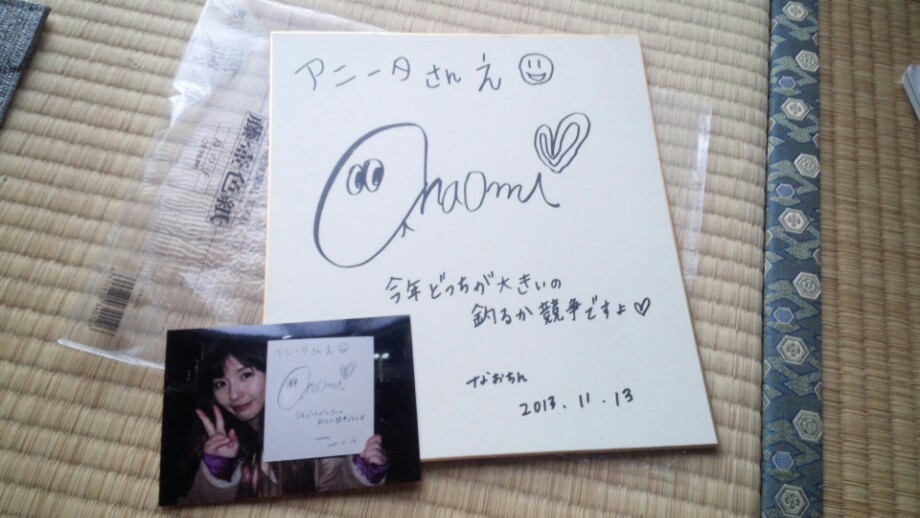 アニータさんえ
naomi
今年どっちが大きいの
釣るか競争ですよ♡
なおちん
2013.11.13
アニータさんえ
naomi